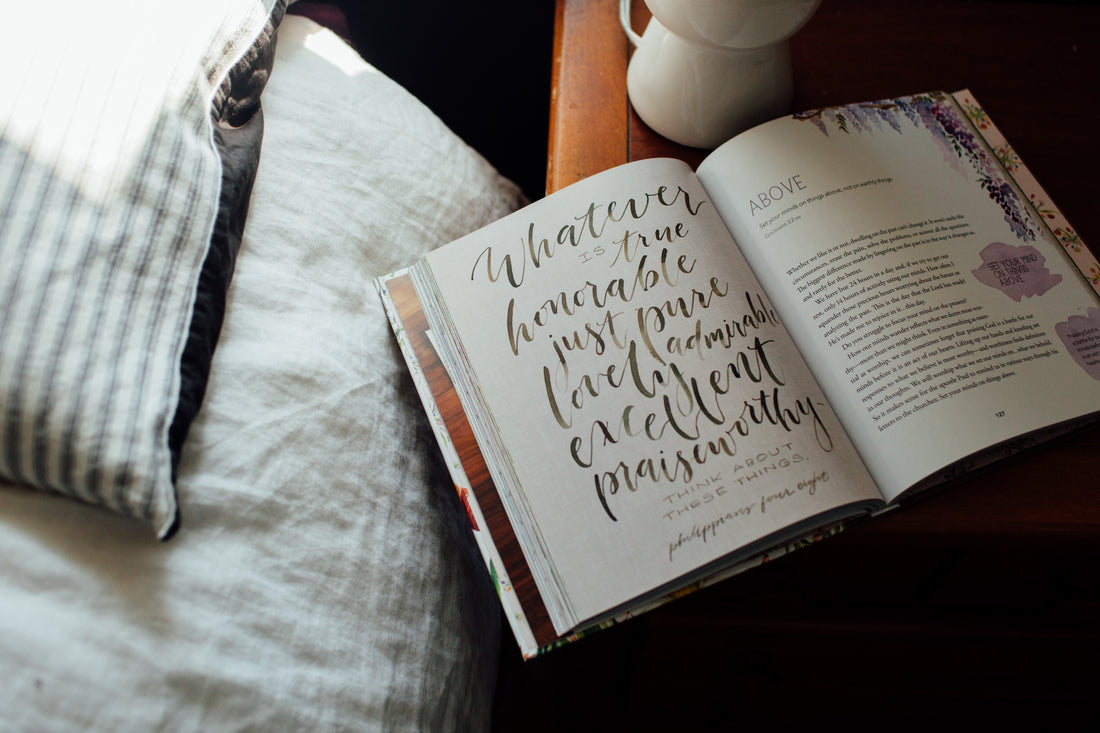 Whatever
IS true
honorable
just pure
lovely admirable
excellent
praiseworthy
THINK ABOUT
THESE THINGS.
philippians four eight
ABOVE
Set your minds on things above, not on earthly things.
Colossians 3:2 NIV
Whether we like it or not, dwelling on the past can't change it. It won't undo the
circumstances, erase the pain, solve the problem, or answer all the questions.
The biggest difference made by lingering on the past is in the way it changes us,
and rarely for the better.
We have but 24 hours in a day and, if we try to get our
rest, only 14 hours of actively using our minds. How often I
squander those precious hours worrying about the future or
analyzing the past. This is the day that the Lord has made
He's made me to rejoice in it...this day.
Do you struggle to focus your mind on the present?
How our minds wander reflects what we deem wor-
thy—more than we might think. Even in something as essen-
tial as worship, we can sometimes forget that praising God is a battle for our
minds before it is an act of our hearts. Lifting up our hands and kneeling are
responses to what we believe is most worthy—and worthiness finds definition
in our thoughts. We will worship what we set our minds on...what we behold.
So it makes sense for the apostle Paul to remind us in various ways through his
letters to the churches: Set your minds on things above.
SET YOUR MIND
ON THINGS
ABOVE
Praising God
127